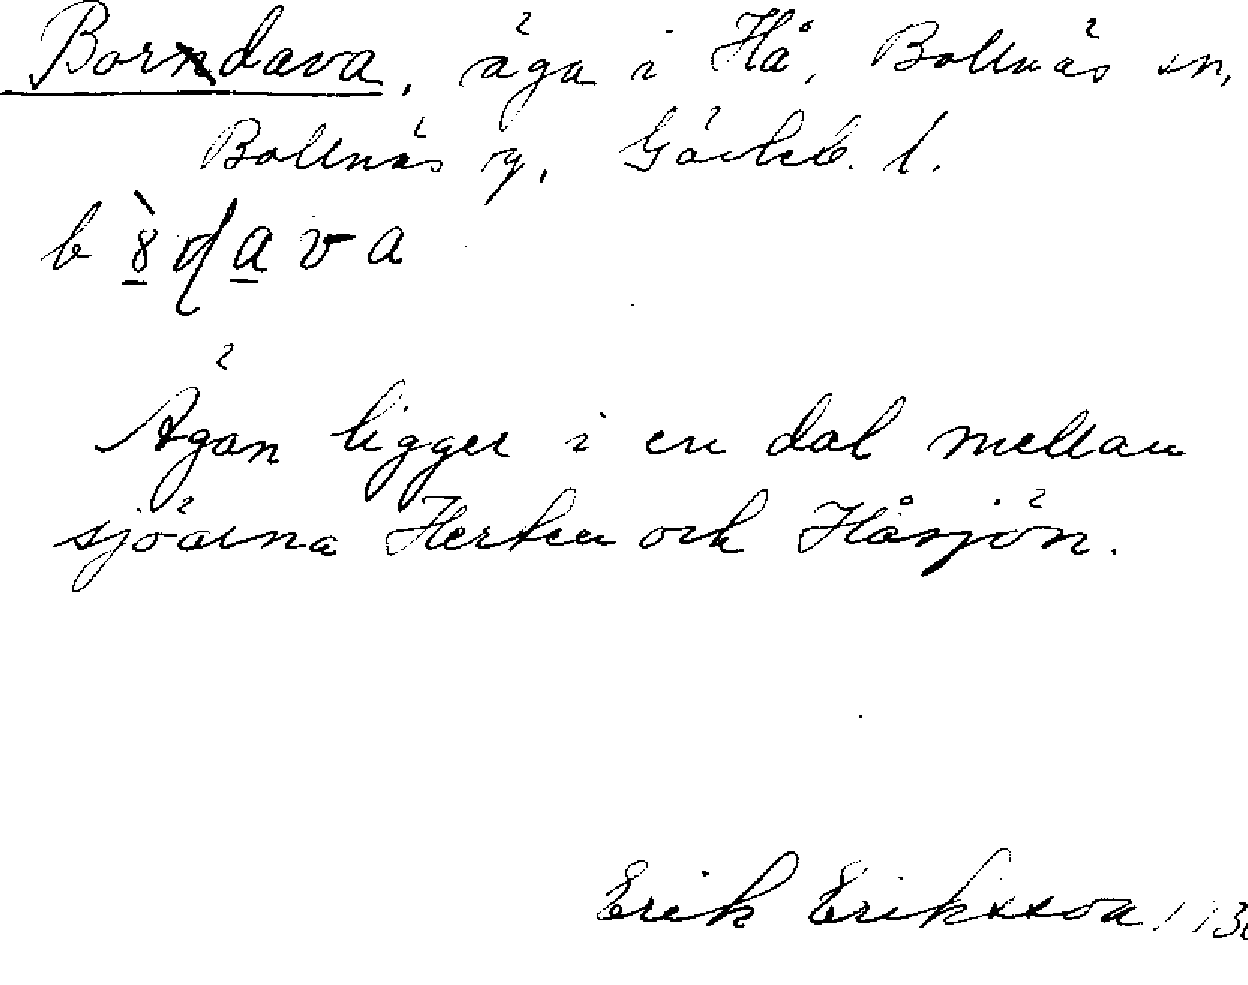 Bordava, äga i Hå, Bollnäs sn,
Bollnäs
Ägan ligger i en dal mellan
sjöarna Herten och Håsjön.
Erik Eriksson